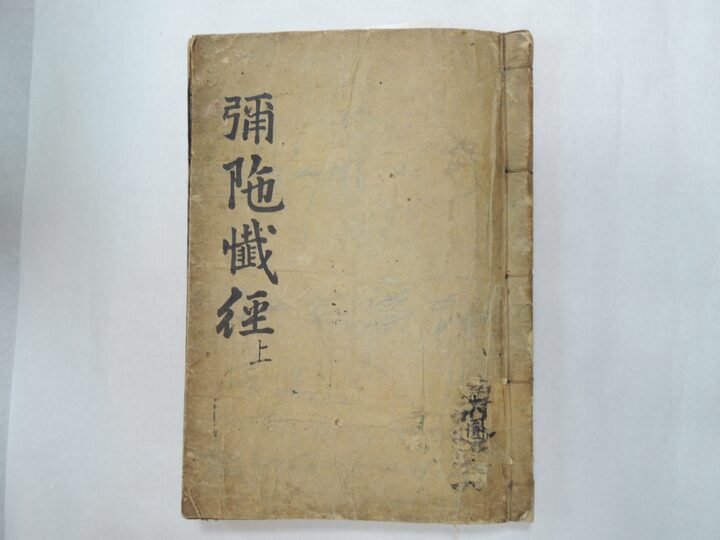 彌陁懺經
上